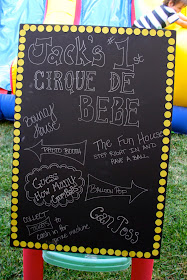 Jack's 1st
CIRQUE DE
BEBE
Bouncy
House
PHOTO BOOTH
The Fun House
STEP RIGHT IN AND
HAVE A BALL
Guess
How Many
Gumballs
BALLOON POP
COLLECT
TICKETS to
cash in for
prize machine
Coin Toss